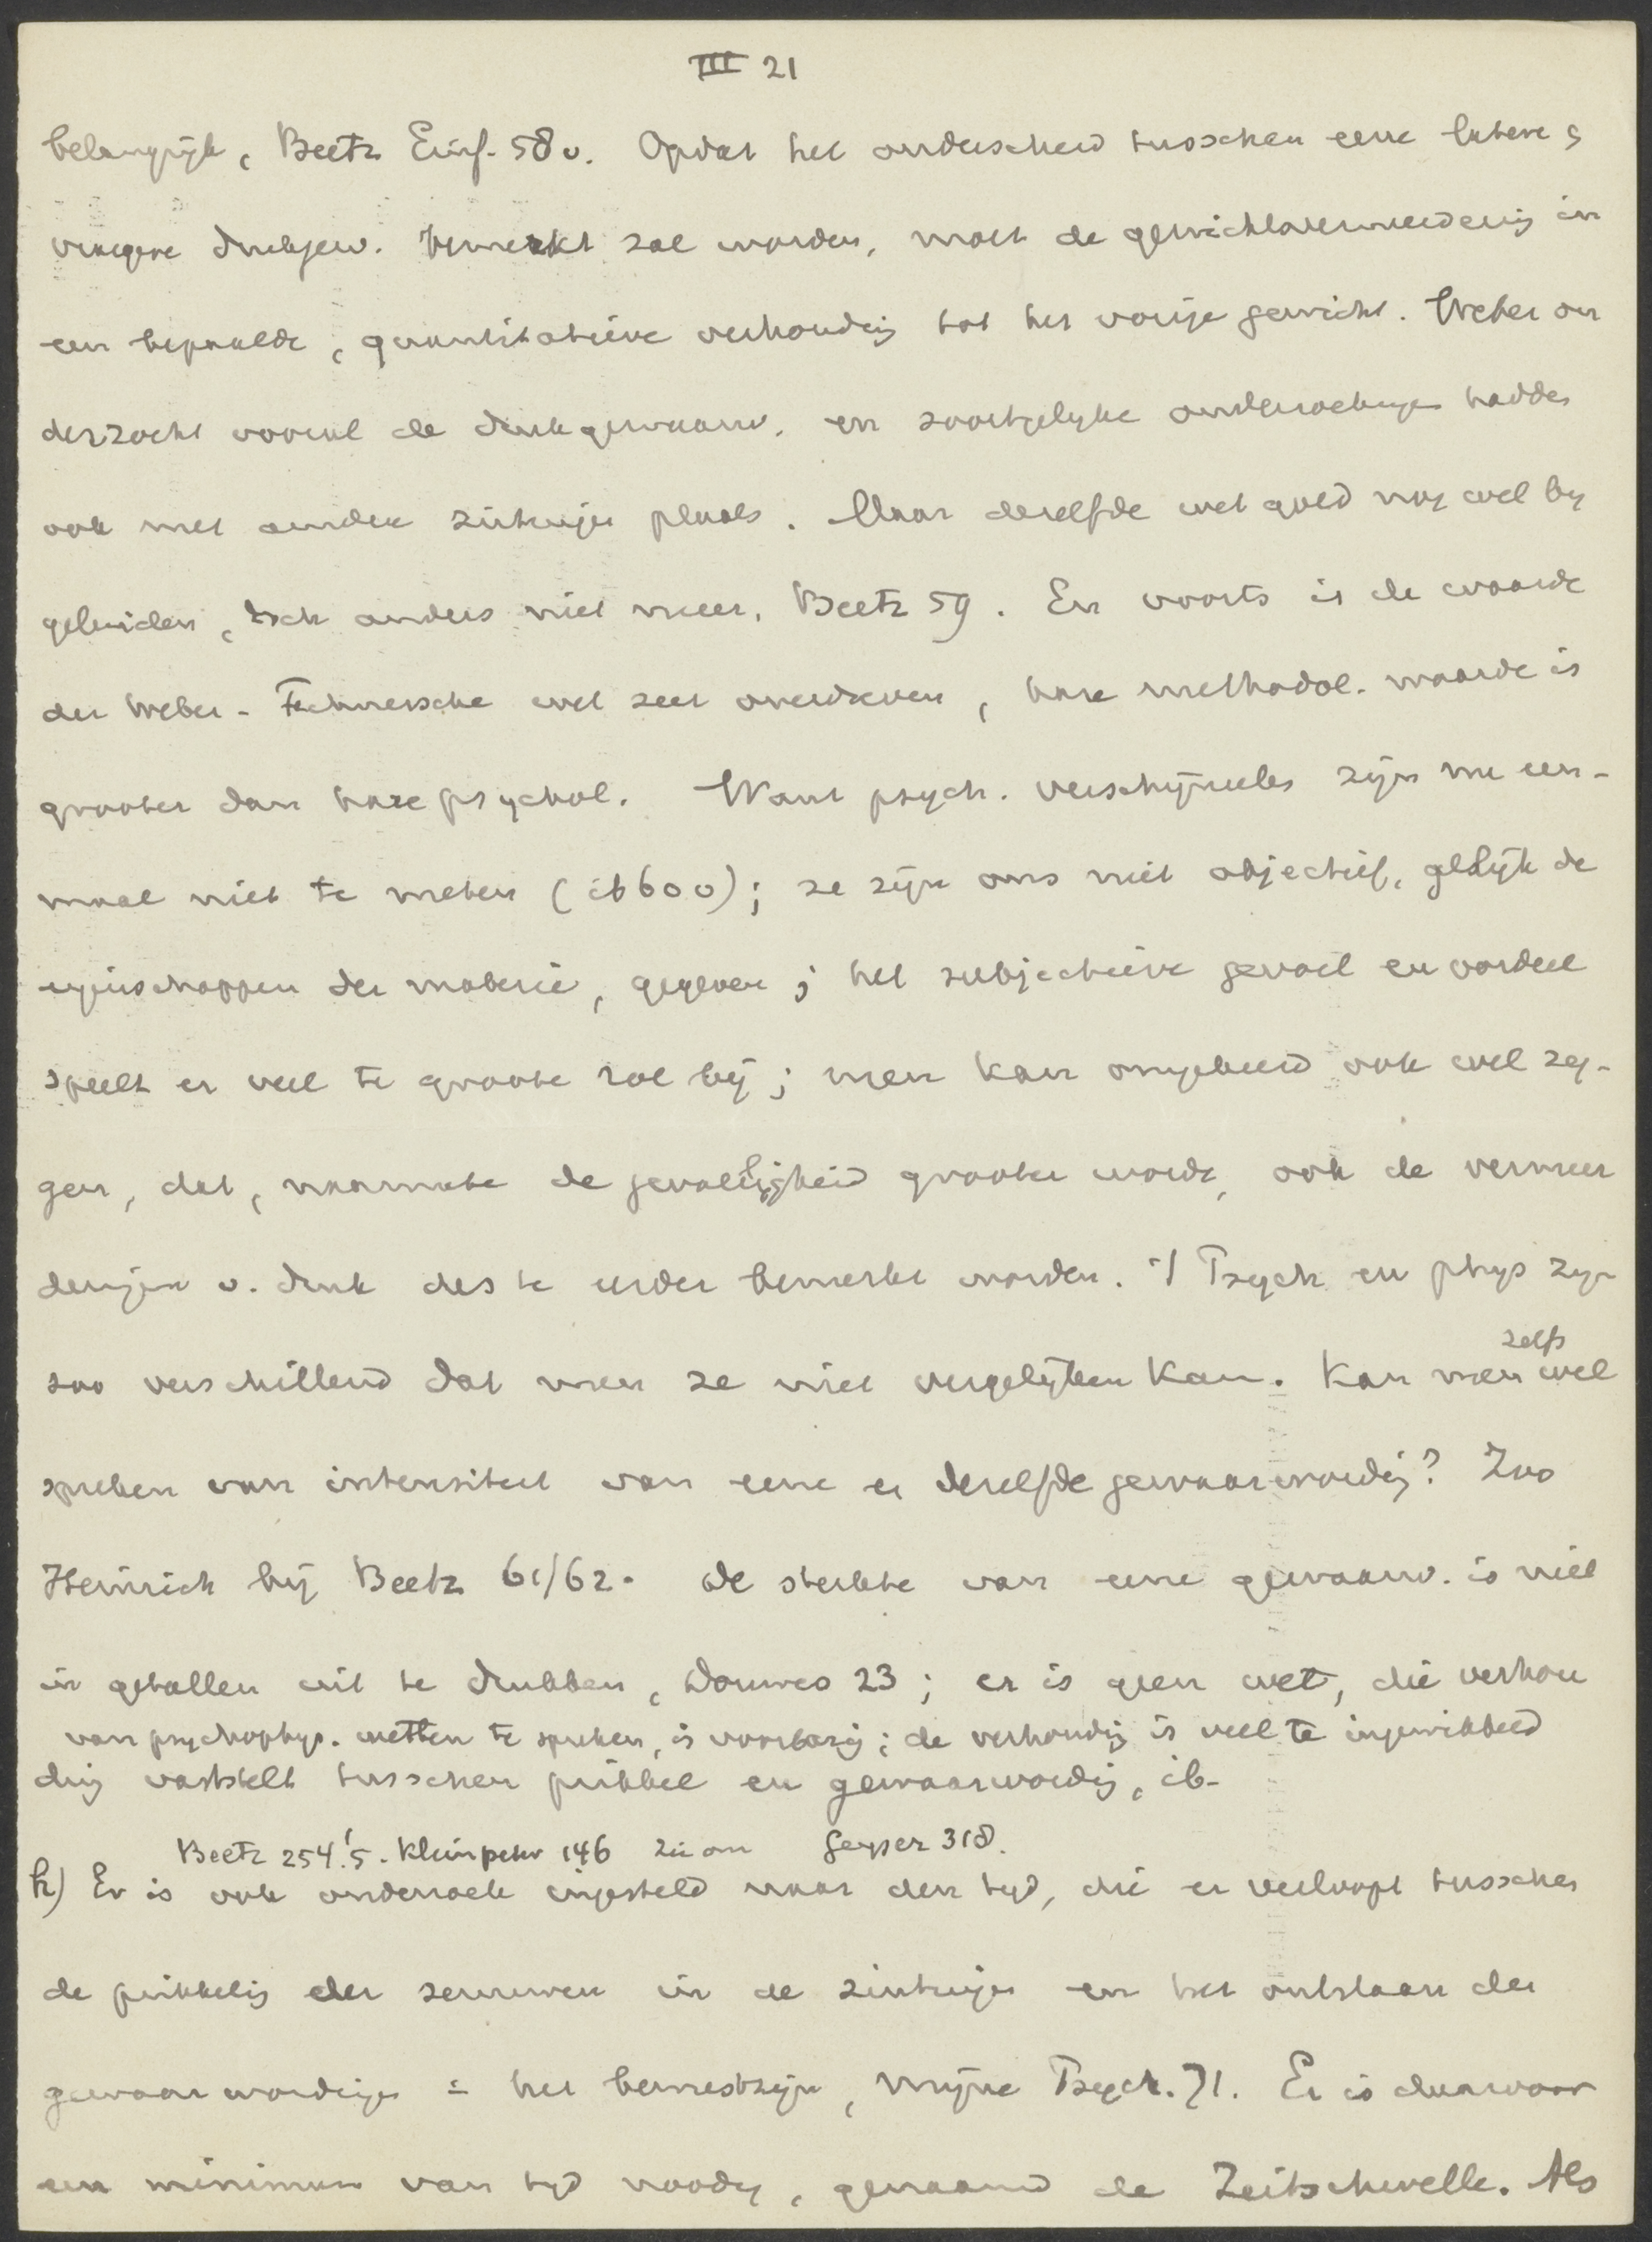 III 21
belangrijk, Beetz Einf. 58v. Opdat het onderscheid tusschen eene latere &
vroegere drukgew. bemerkt zal worden, moet de gewichtsvermeerdering in
een bepaalde, quantitatieve verhouding tot het vorige gewicht. Weber on
derzocht vooral de drukgewaarw. en soortgelyke onderzoekingen hadden
ook met andere zintuigen plaats. Maar dezelfde wet goed nog wel by
geluiden, doch anders niet meer, Beetz 59. En voorts is de waarde
der Weber-Fechnersche wet zeer overdreven, hare methodol. waarde is
grooter dan hare psychol. Want psych. verschijnselen zijn nu een-
maal niet te meten (ib 60v); ze zijn ons niet objectief, gelijk de
eigenschappen der materie, gegeven; het subjectieve gevoel en oordeel
speelt er veel te groote rol bij; men kan omgekeerd ook wel zeg-
gen, dat, naarmate de gevoeligheid grooter wordt, ook de vermeer
deringen v. druk des te eerder bemerkt worden. 't Psych en phys zyn
zoo verschillend dat men ze niet vergelijken kan. Kan men zelfs wel
spreken van intensiteit van eene en dezelfde gewaarwording? Zoo
Heinrich bij Beetz 61/62. de sterkte van eene gewaarw. is niet
in getallen uit te drukken, Douwes 23; er is geen wet, die verhou
van psychophys. wetten te spreken, is voorbarig; de verhouding is veel te ingewikkeld
ding vaststelt tusschen prikkel en gewaarwording, ib.
Beetz 254.'5. Kleinpeter 146 Geyser 318.
h) Er is ook onderzoek ingesteld naar den tyd, die er verloopt tusschen
de prikkeling der zenuwen in de zintuigen en het ontstaan der
gewaarwordingen = het bewustzijn, Mijne Psych. 71. Er is daarvoor
een minimum van tyd noodig, genaamd de Zeitschwelle. Als